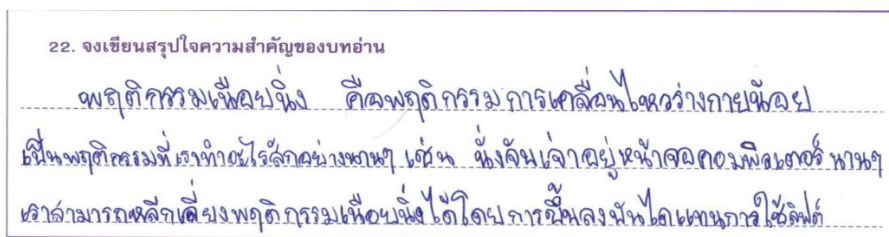 22. จงเขียนสรุปใจความสำคัญของบทอ่าน
พฤติกรรมเนือยนิ่ง คือพฤติกรรมการเคลื่อนไหวร่างกายน้อย
เป็นพฤติกรรมที่เราทำอะไรสักอย่างนานๆ เช่น นั่งจับเจ่าอยู่หน้าจอคอมพิวเตอร์ นานๆ
เราสามารถหลีกเลี่ยงพฤติกรรมเนือยนิ่งได้โดยการขึ้นลงบันไดแทนการใช้ลิฟต์